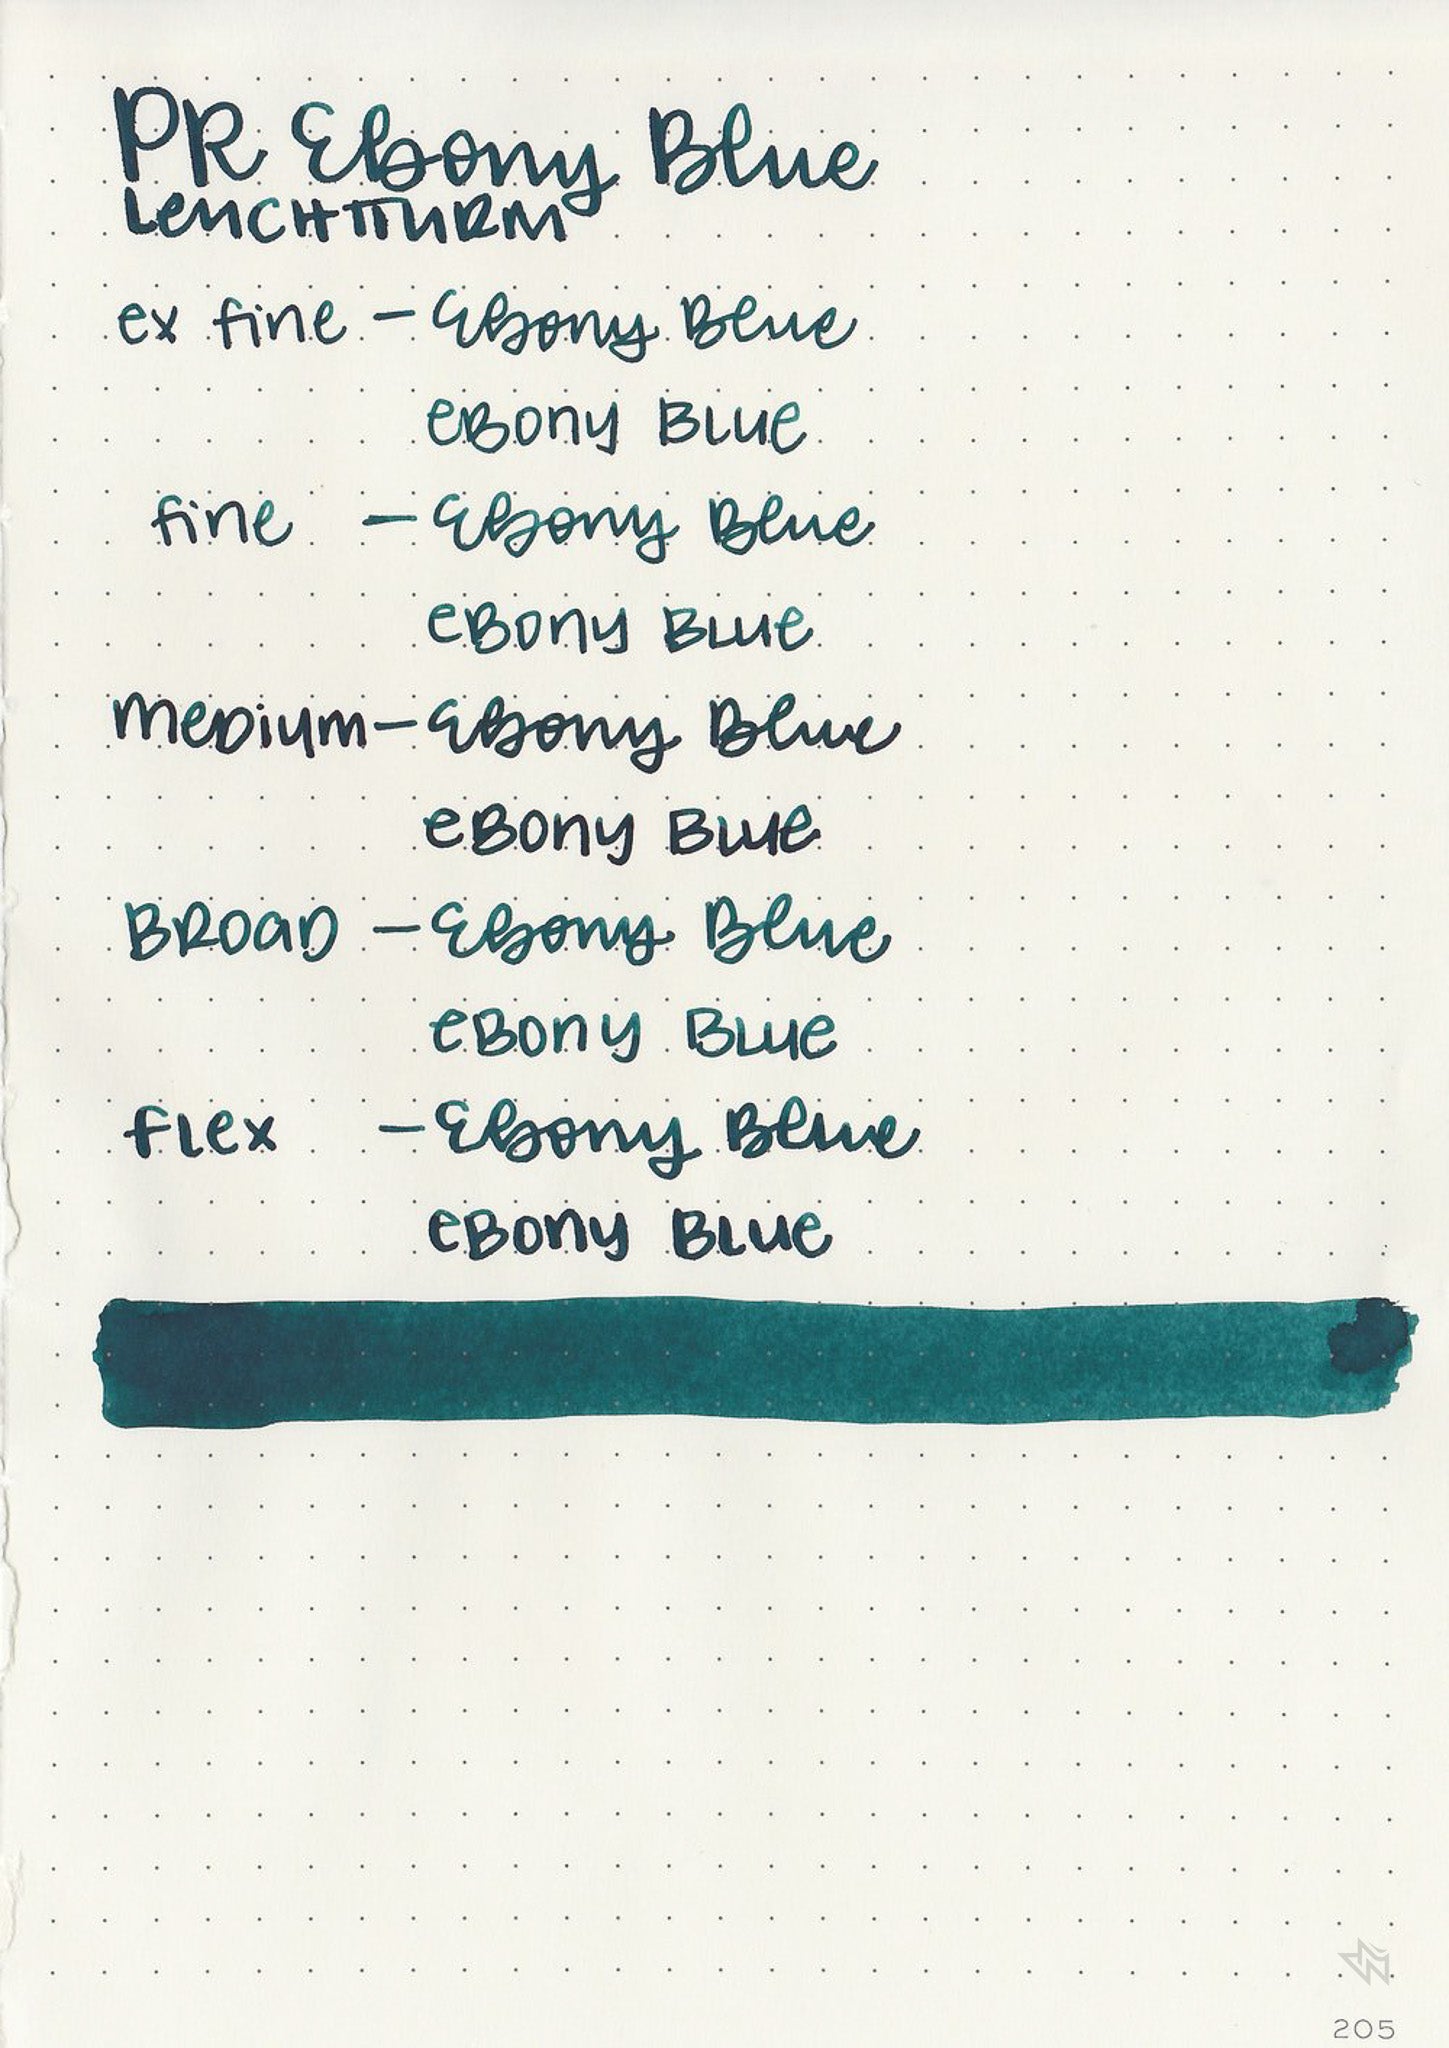 PR Ebony Blue
LEUCHTTURM
ex fine - Ebony Blue
EBONY BLUE
fine - Ebony Blue
EBONY BLUE
MEDIUM - Ebony Blue
EBONY BLUE
BROAD - Ebony Blue
EBONY BLUE
FLEX - Ebony Blue
EBONY BLUE
205